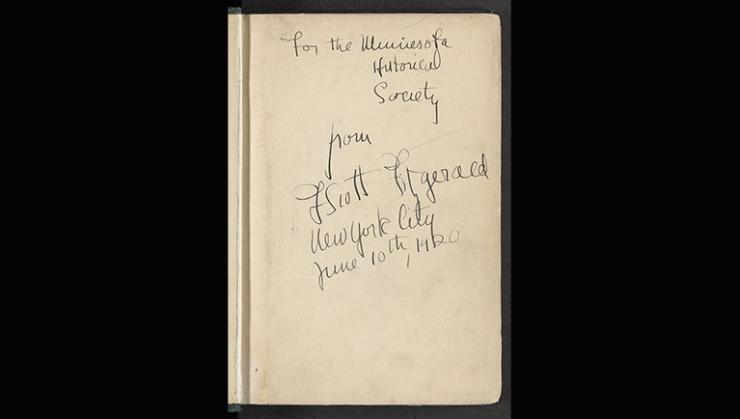 For the Minnesota
Historical
Society
from
F Scott Fitzgerald
New York City
June 10th, 1920